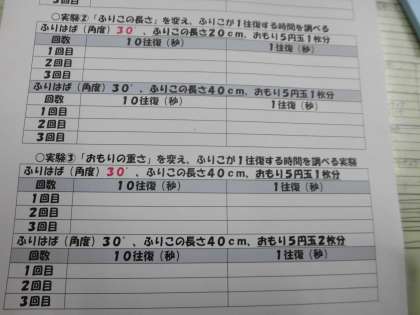 3回目
○実験②「ふりこの長さ」を変え、ふりこが1往復する時間を調べる
ふりはば（角度）30°、ふりこの長さ20cm、おもり5円玉1枚分
回数 10往復（秒） 1往復（秒）
1回目
2回目
3回目
ふりはば（角度）30°、ふりこの長さ40cm、おもり5円玉1枚分
回数 10往復（秒） 1往復（秒）
1回目
2回目
3回目
○実験③「おもりの重さ」を変え、ふりこが1往復する時間を調べる実験
ふりはば（角度）30°、ふりこの長さ40cm、おもり5円玉1枚分
回数 10往復（秒） 1往復（秒）
1回目
2回目
3回目
ふりはば（角度）30°、ふりこの長さ40cm、おもり5円玉2枚分
回数 10往復（秒） 1往復（秒）
1回目
2回目
3回目